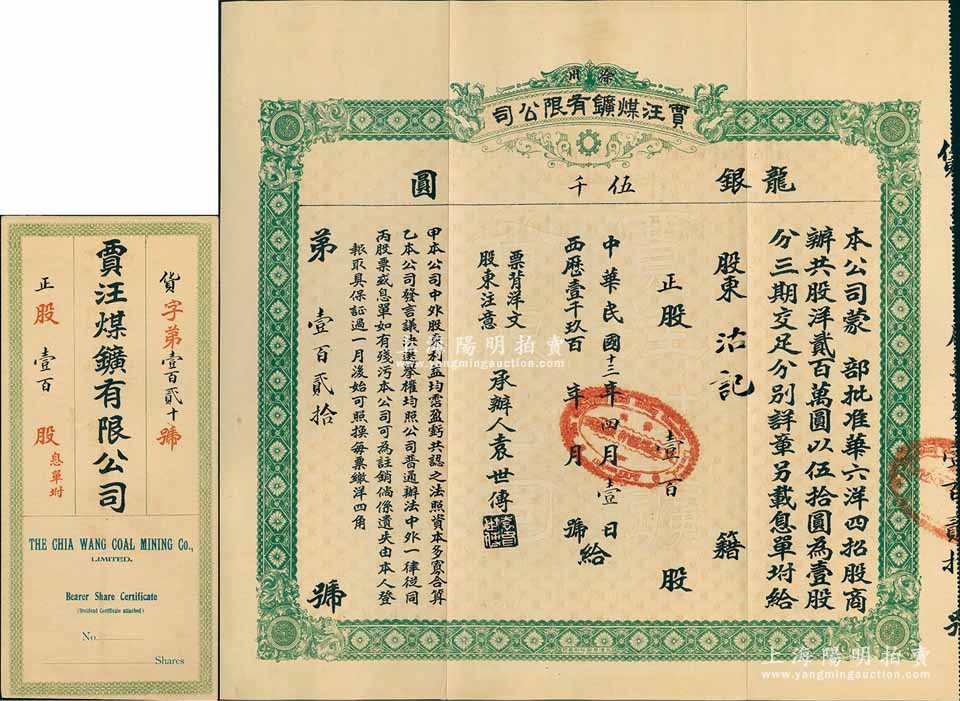 貨字第壹百貳十號
賈汪煤鑛有限公司
正股壹百股息單坿
THE CHIA WANG COAL MINING Co.,
LIMITED.
Bearer Share Certificate
(Dividend Certificate attached)
No.
Shares
徐州
賈汪煤鑛有限公司
龍銀伍千圓
本公司蒙 部批准華六洋四招股商
辦共股洋貳百萬圓以伍拾圓為壹股
分三期交足分別詳章另載息單坿給
股東沽記籍
正股壹百股
中華民國十三年四月壹日
西歷壹千玖百 年 月 號給
票背洋文
股東注意
承辦人袁世傳
甲本公司中外股東利益均霑盈虧共認之法照資本多寡合算
乙本公司發言議決選舉權均照公司普通辦法中外一律從同
丙股票或息單如有殘污本公司可為註銷倘係遺失由本人登
報取具保証過一月後始可照換每票繳洋四角
第壹百貳拾號
上海陽明拍賣
www.yangmingauction.com
上海陽明拍賣
www.yangmingauction.com